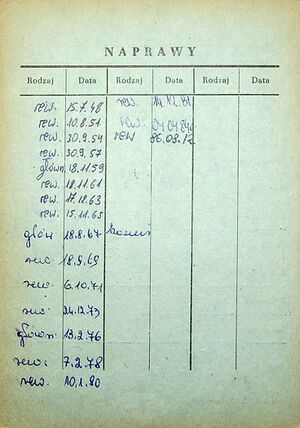 NAPRAWY
Rodzaj Data Rodzaj Data Rodzaj Data
rew. 15.7.48 rew. 14.12.81
rew. 10.8.51 rew. 04.04.84
rew. 30.9.54 rew 86.03.12
rew. 30.9.57
główn. 18.11.59
rew. 18.11.61
rew. 17.12.63
rew. 15.11.65
główn 18.8.67
rew. 18.9.69
rew. 6.10.71
rew. 24.12.73
główn. 13.2.76
rew. 7.2.78
rew. 10.1.80